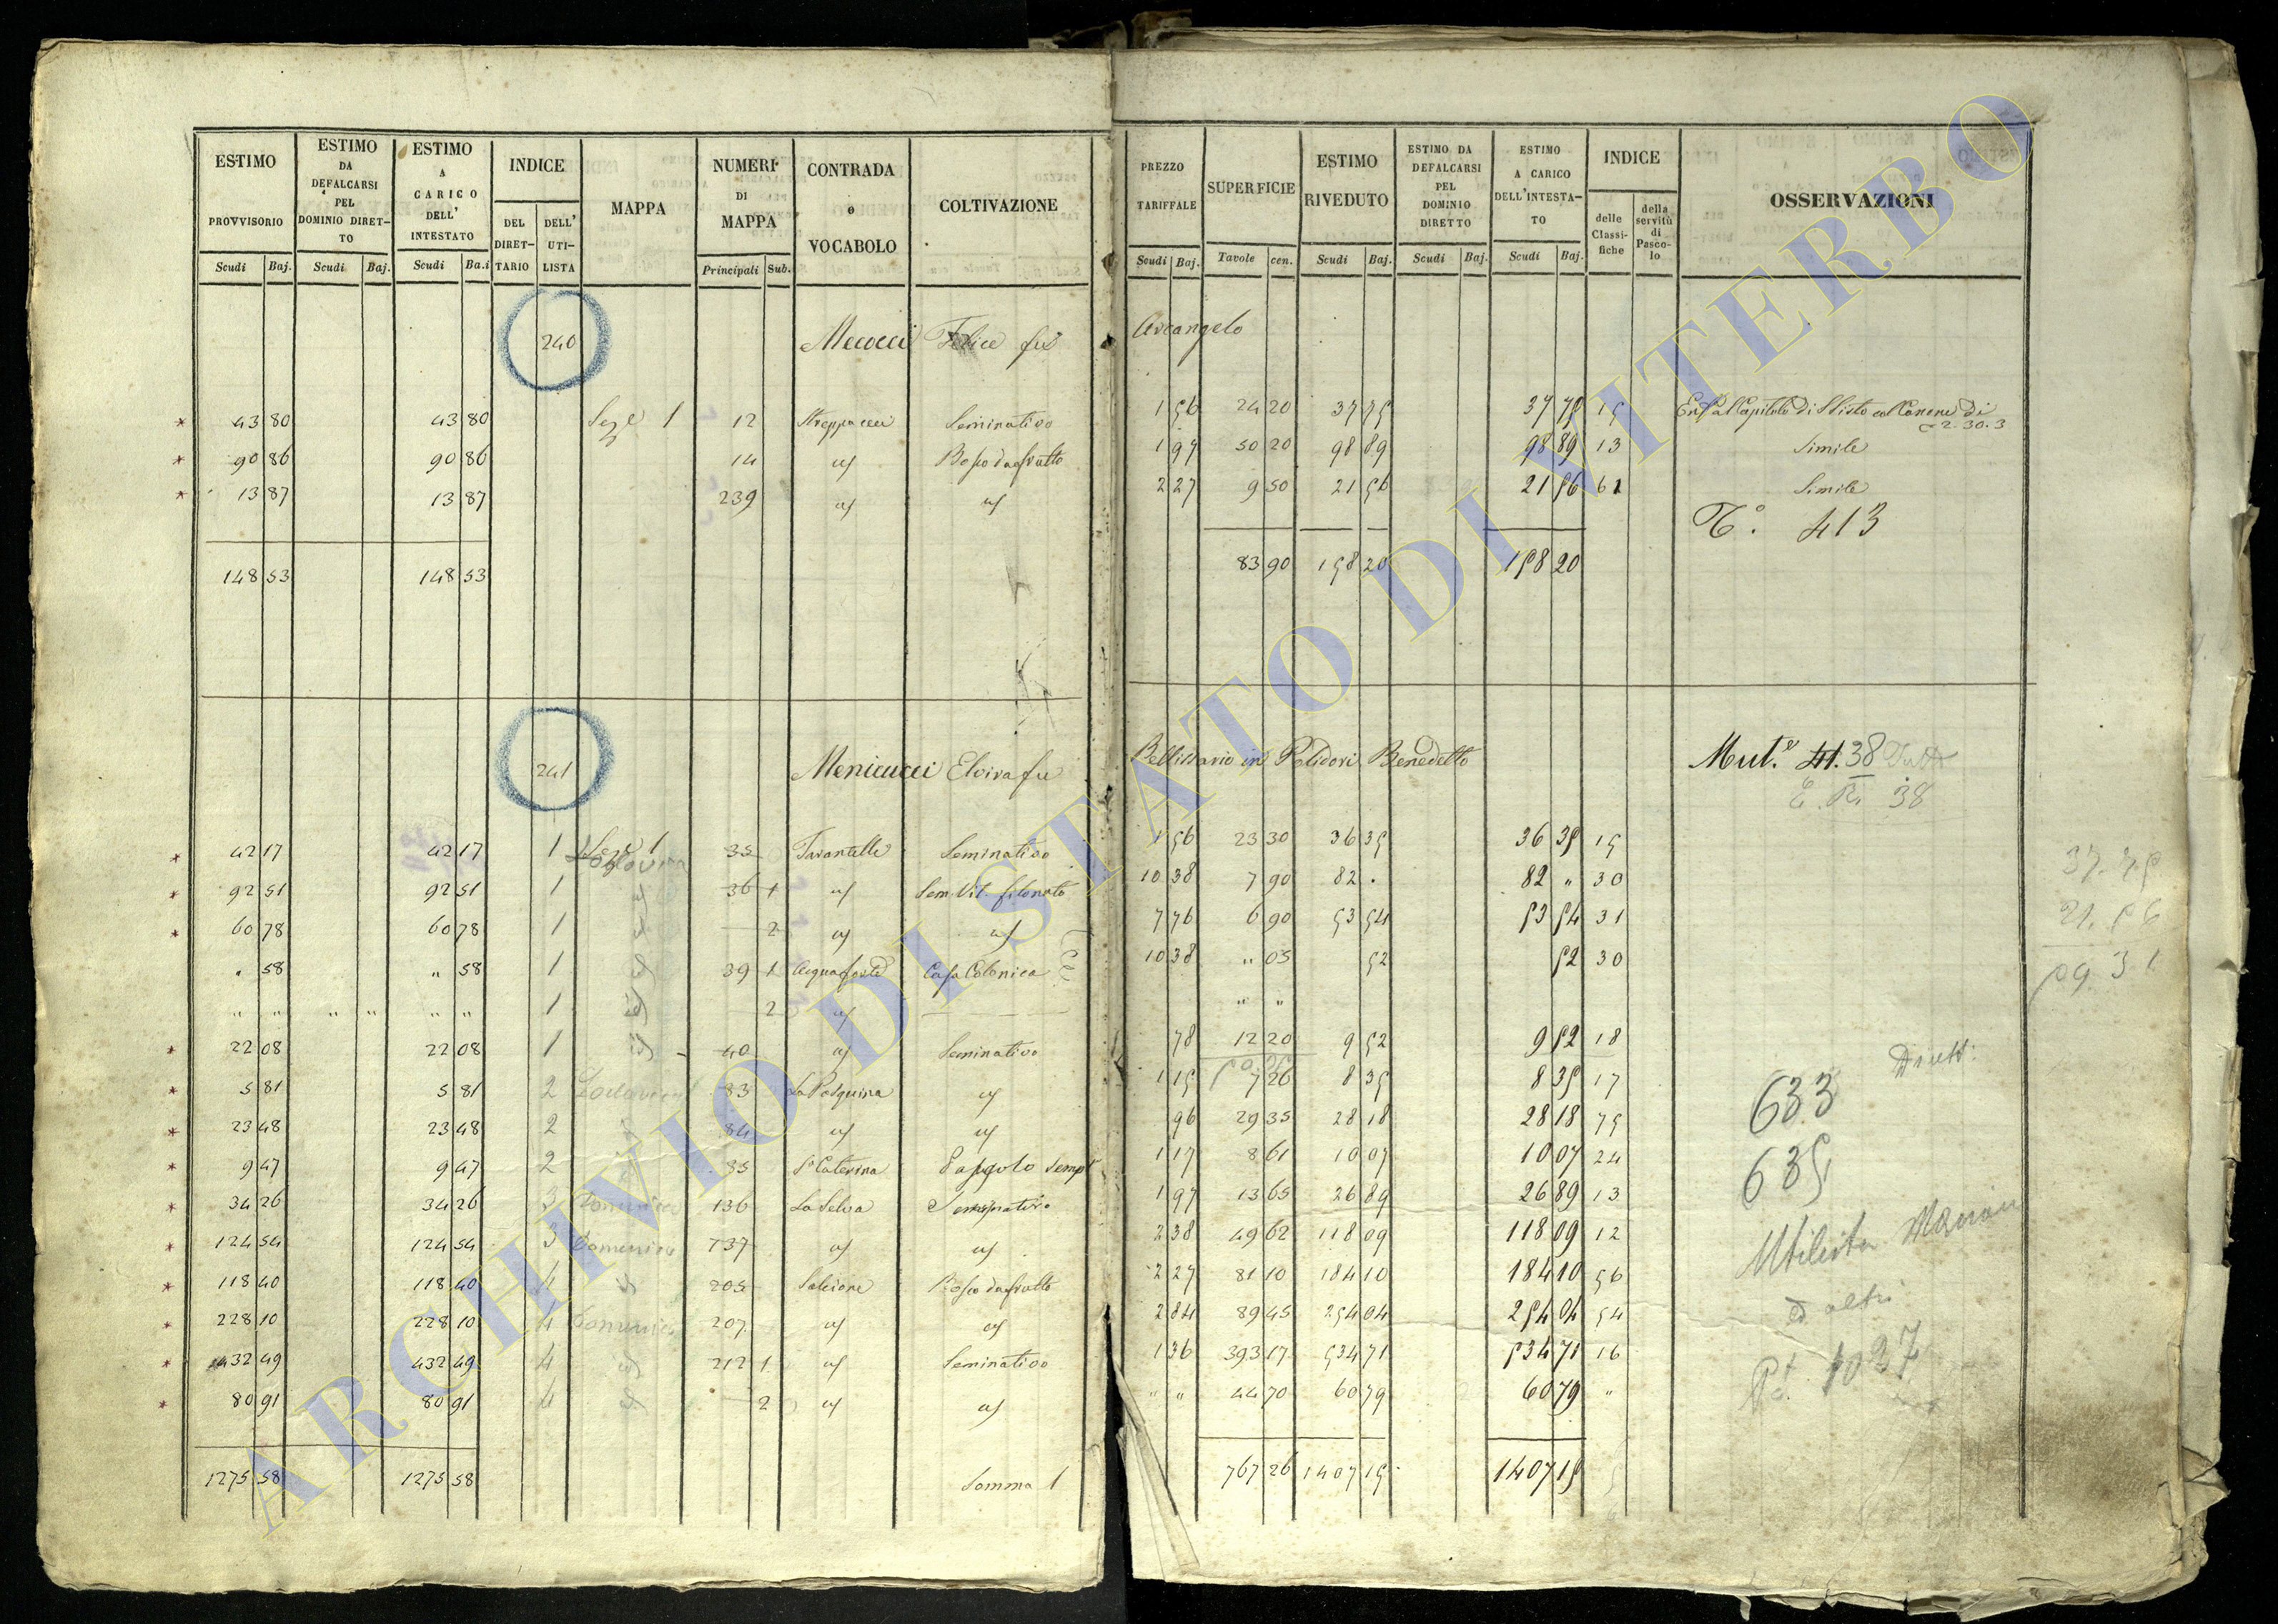 ESTIMO PROVVISORIO Scudi Baj.
ESTIMO DA DEFALCARSI PEL DOMINIO DIRETTO Scudi Baj.
ESTIMO A CARICO DELL' INTESTATO Scudi Ba.i
INDICE DEL DIRETTARIO DELL' UTILISTA
MAPPA
NUMERI DI MAPPA Principali Sub.
CONTRADA o VOCABOLO
COLTIVAZIONE
PREZZO TARIFFALE Scudi Baj.
SUPERFICIE Tavole cen.
ESTIMO RIVEDUTO Scudi Baj.
ESTIMO DA DEFALCARSI PEL DOMINIO DIRETTO Scudi Baj.
ESTIMO A CARICO DELL'INTESTATO Scudi Baj.
INDICE delle Classifiche della servitù di Pascolo
OSSERVAZIONI
240 Mecocci Felice fu Arcangelo
43 80 43 80 1 12 Seminativo 1 56 24 20 37 75 37 75 15
90 86 90 86 14 Bosco da frutto 1 97 50 20 98 89 98 89 13 Simile
13 87 13 87 239 2 27 9 50 21 56 21 56 61 Simile
T.º 413
148 53 148 53 83 90 158 20 158 20
241 Menicucci Elvira fu Bellisario in Polidori Benedetto Mut.e 41. 38
38
42 17 42 17 1 1 35 Tarantelle Seminativo 1 56 23 30 36 35 36 35 15
92 51 92 51 1 36 1 Sem. Vit. filonato 10 38 7 90 82 . 82 " 30
60 78 60 78 1 2 7 76 6 90 53 54 53 54 31
. 58 " 58 1 39 1 Casa Colonica 10 38 " 05 52 52 30
" " " " " " 1 2 " "
22 08 22 08 1 40 Seminativo 78 12 20 9 52 9 52 18
5 81 5 81 2 83 La Pasquina 1 15 7 26 8 35 8 35 17
23 48 23 48 2 84 96 29 35 28 18 28 18 75
9 47 9 47 2 85 S. Caterina Pascolo Semp. 1 17 8 61 10 07 10 07 24
34 26 34 26 3 136 La Selva Seminativo 1 97 13 65 26 89 26 89 13
124 54 124 54 3 137 2 38 49 62 118 09 118 09 12
118 40 118 40 4 205 Salcione Bosco da frutto 2 27 81 10 184 10 184 10 56
228 10 228 10 4 207 2 84 89 45 254 04 254 04 54
432 49 432 49 4 212 1 Seminativo 1 36 393 17 534 71 534 71 16
80 91 80 91 4 2 " " 44 70 60 79 60 79 "
1275 58 1275 58 Somma 1 767 26 1407 15 1407 15
37.75
21.56
59.31
633
635
Utilista
ed altri
1027
ARCHIVIO DI STATO DI VITERBO